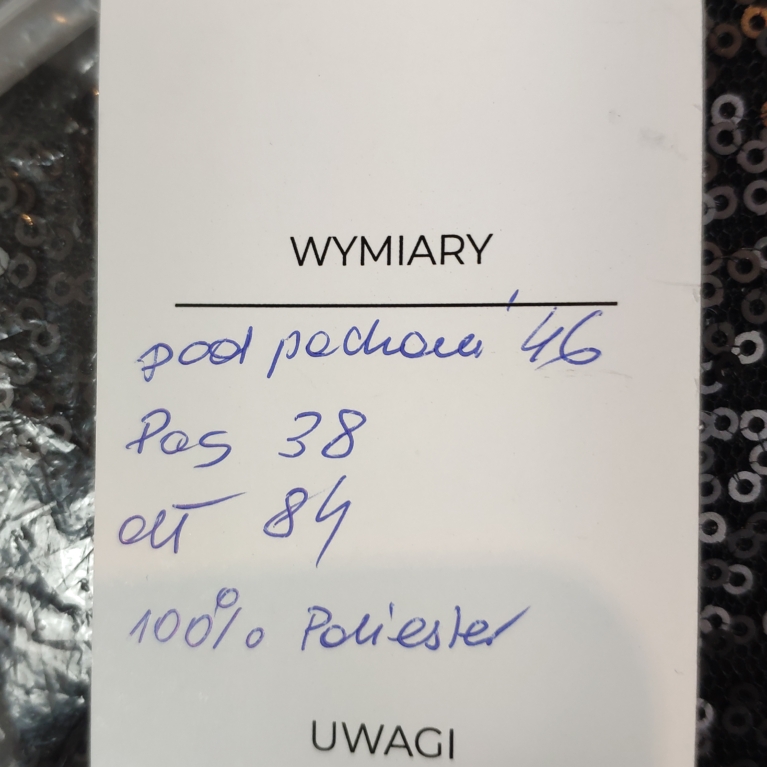 WYMIARY
pod pachami 46
Pas 38
dł 84
100% Poliester
UWAGI